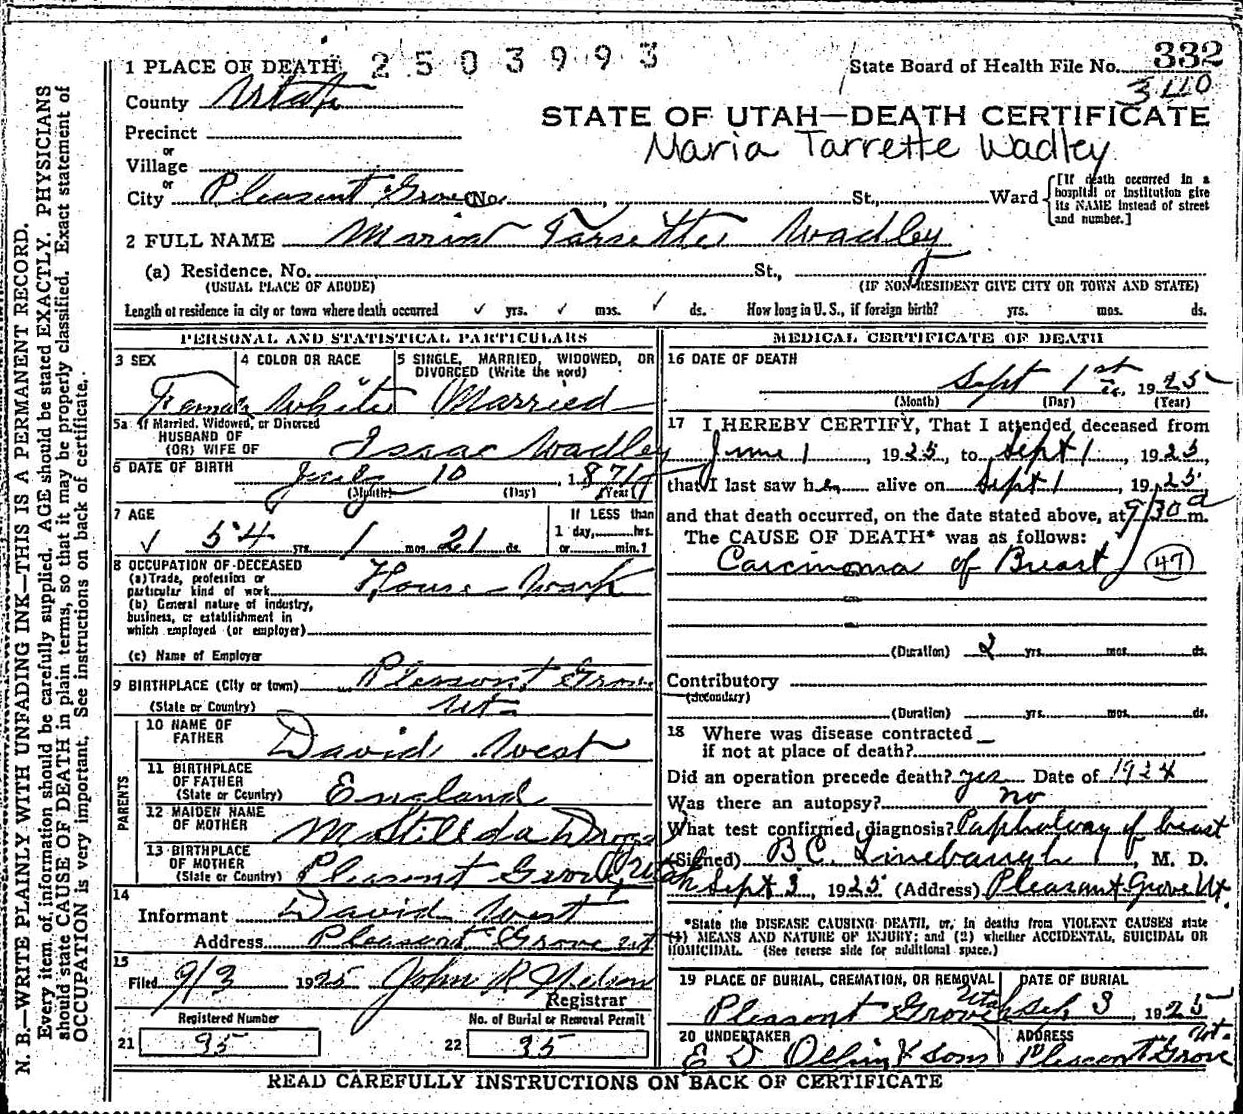 1 PLACE OF DEATH 2503993
State Board of Health File No. 332
County Utah
340
STATE OF UTAH—DEATH CERTIFICATE
Precinct
Maria Tarrette Wadley
or
Village
or
City Pleasant Grove No. St., Ward
[If death occurred in a hospital or institution give its NAME instead of street and number.]
2 FULL NAME Wadley
(a) Residence. No. St.,
(USUAL PLACE OF ABODE) (IF NON-RESIDENT GIVE CITY OR TOWN AND STATE)
Length of residence in city or town where death occurred ✓ yrs. ✓ mos. ✓ ds. How long in U. S., if foreign birth? yrs. mos. ds.
PERSONAL AND STATISTICAL PARTICULARS
3 SEX 4 COLOR OR RACE 5 SINGLE, MARRIED, WIDOWED, OR DIVORCED (Write the word)
Female White Married
5a If Married, Widowed, or Divorced
HUSBAND OF
(OR) WIFE OF Isaac Wadley
6 DATE OF BIRTH July 10, 1871
(Month) (Day) (Year)
7 AGE If LESS than
✓ 54 yrs. 1 mos. 21 ds. 1 day, hrs.
or min.?
8 OCCUPATION OF DECEASED
(a) Trade, profession or
particular kind of work House-Work
(b) General nature of industry,
business, or establishment in
which employed (or employer)
(c) Name of Employer
9 BIRTHPLACE (City or town) Pleasant Grove
(State or Country) Ut.
PARENTS
10 NAME OF
FATHER David West
11 BIRTHPLACE
OF FATHER
(State or Country) England
12 MAIDEN NAME
OF MOTHER
13 BIRTHPLACE
OF MOTHER
(State or Country) Pleasant Grove, Utah
14
Informant David West
Address Pleasant Grove Ut
15
Filed 9/3 1925 John R
Registrar
Registered Number No. of Burial or Removal Permit
21 35 22 35
MEDICAL CERTIFICATE OF DEATH
16 DATE OF DEATH
Sept 1st 1925
(Month) (Day) (Year)
17 I HEREBY CERTIFY, That I attended deceased from
June 1, 1925, to Sept 1, 1925,
that I last saw her alive on Sept 1, 1925
and that death occurred, on the date stated above, at 9/30 a m.
The CAUSE OF DEATH* was as follows:
Carcinoma of Breast (47)
(Duration) 2 yrs. mos. ds.
Contributory
(Secondary)
(Duration) yrs. mos. ds.
18 Where was disease contracted
if not at place of death?
Did an operation precede death? yes Date of 1924
Was there an autopsy? no
What test confirmed diagnosis? of breast
(Signed) B C Linebaugh, M. D.
Sept 3, 1925 (Address) Pleasant Grove Ut.
*State the DISEASE CAUSING DEATH, or, in deaths from VIOLENT CAUSES state
(1) MEANS AND NATURE OF INJURY; and (2) whether ACCIDENTAL, SUICIDAL OR
HOMICIDAL. (See reverse side for additional space.)
19 PLACE OF BURIAL, CREMATION, OR REMOVAL DATE OF BURIAL
Pleasant Grove Utah Sep 3, 1925
20 UNDERTAKER ADDRESS
E D & Sons Pleasant Grove Ut.
READ CAREFULLY INSTRUCTIONS ON BACK OF CERTIFICATE
N. B.—WRITE PLAINLY WITH UNFADING INK—THIS IS A PERMANENT RECORD.
Every item of information should be carefully supplied. AGE should be stated EXACTLY. PHYSICIANS
should state CAUSE OF DEATH in plain terms, so that it may be properly classified. Exact statement of
OCCUPATION is very important. See instructions on back of certificate.